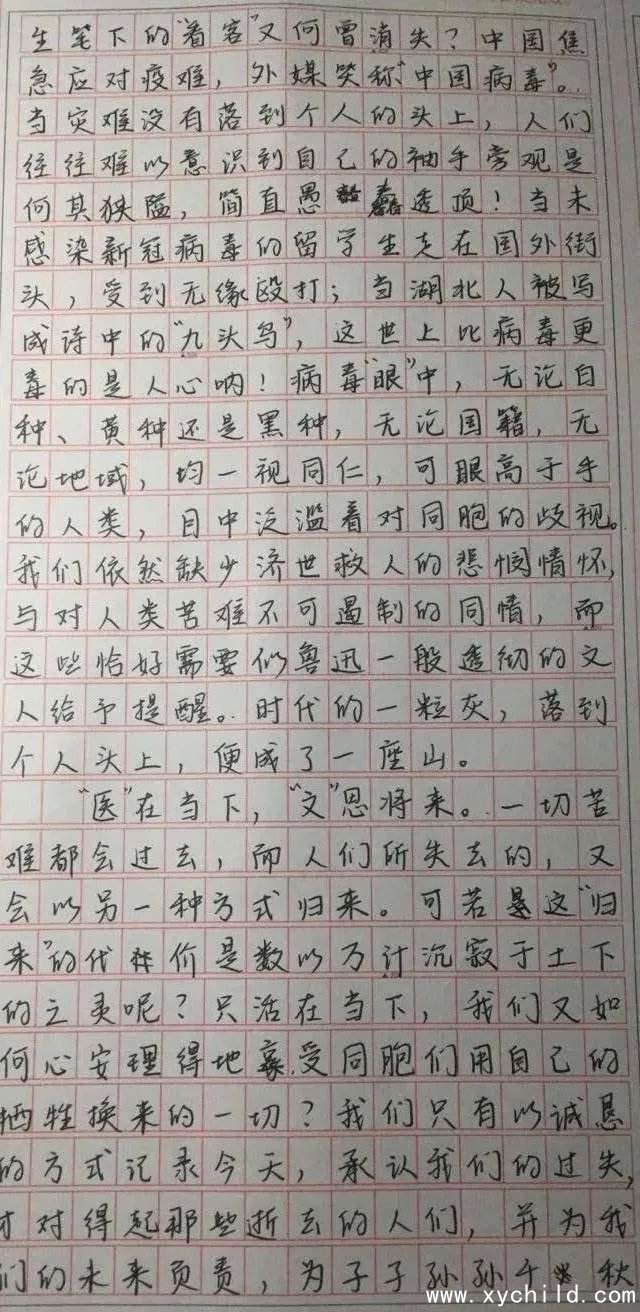 生笔下的"看客"又何曾消失？中国焦
急应对疫难，外媒笑称"中国病毒"。
当灾难没有落到个人的头上，人们
往往难以意识到自己的袖手旁观是
何其狭隘，简直愚蠢透顶！当未
感染新冠病毒的留学生走在国外街
头，受到无缘殴打；当湖北人被写
成诗中的"九头鸟"，这世上比病毒更
毒的是人心呐！病毒"眼"中，无论白
种、黄种还是黑种，无论国籍，无
论地域，均一视同仁，可眼高于手
的人类，目中泛滥着对同胞的歧视。
我们依然缺少济世救人的悲悯情怀，
与对人类苦难不可遏制的同情，而
这些恰好需要似鲁迅一般透彻的文
人给予提醒。时代的一粒灰，落到
个人头上，便成了一座山。
"医"在当下，"文"恩将来。一切苦
难都会过去，而人们所失去的，又
会以另一种方式归来。可若是这"归
来"的代价是数以万计沉寂于土下
的之灵呢？只活在当下，我们又如
何心安理得地享受同胞们用自己的
牺牲换来的一切？我们只有以诚恳
的方式记录今天，承认我们的过失，
才对得起那些逝去的人们，并为我
们的未来负责，为子子孙孙千秋
www.xychild.com